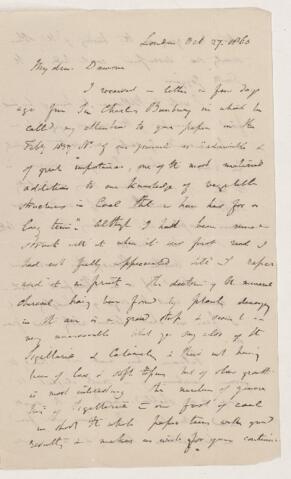 London Oct 27. 1860
My dear Dawson
I received a letter a few days
ago from Sir Charles Bunbury in which he
called my attention to your paper in the
Feby 1859 No of our journal as "admirable &
of great importance, one of the most material
additions to our knowledge of vegetable
structures in Coal that we have had for a
long time". Although I had been much
struck with it when it was first read I
had not fully appreciated till I
read it in print. The doctrine of the mineral
charcoal having been formed by plants decaying
in the air is a grand step & seems to me
very unanswerable. What you say also of the
Sigillariæ & Calamites & their not being
trees of lax & soft tissue but of slow growth
is most interesting. The number of
of Sigillariæ = one foot of coal
in short the whole paper teems with good
results & makes us wish for your